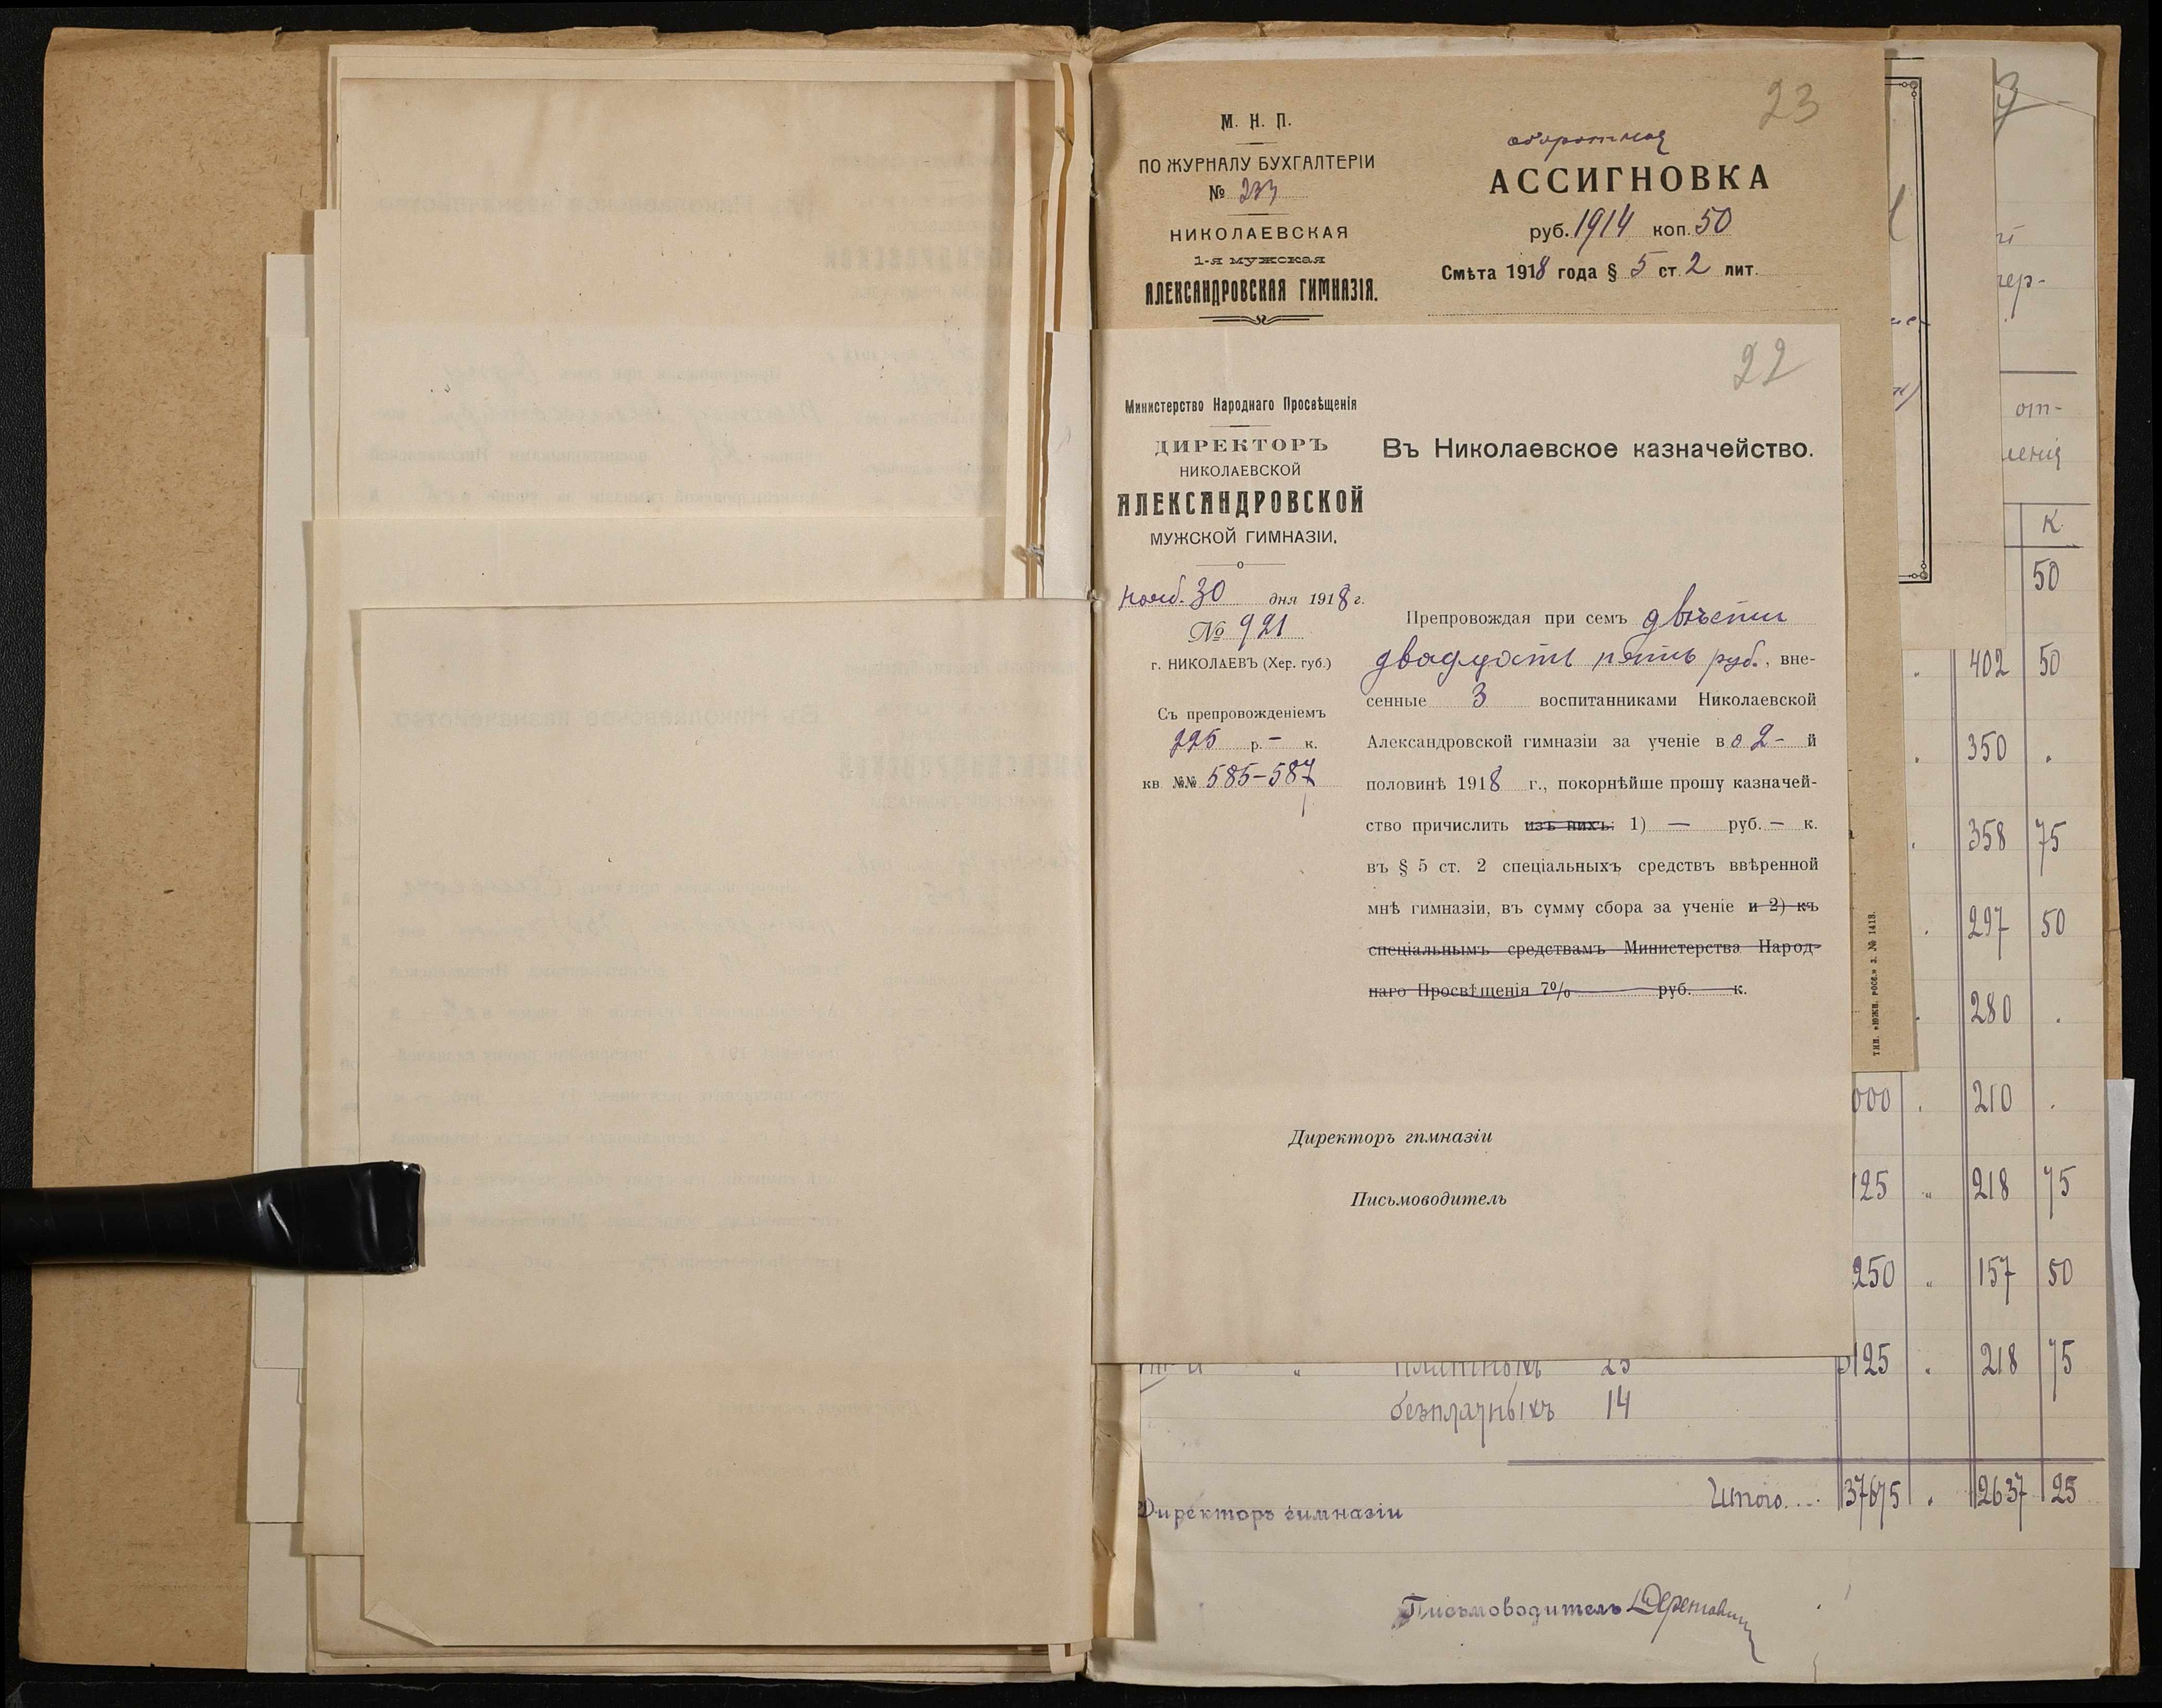 23
М. Н. П.
ПО ЖУРНАЛУ БУХГАЛТЕРІИ
№ 233
НИКОЛАЕВСКАЯ
1-я мужская
АЛЕКСАНДРОВСКАЯ ГИМНАЗІЯ.
оборотная
АССИГНОВКА
руб. 1914 коп. 50
Смѣта 1918 года § 5 ст. 2 лит.
22
Министерство Народнаго Просвѣщенія
ДИРЕКТОРЪ
НИКОЛАЕВСКОЙ
АЛЕКСАНДРОВСКОЙ
МУЖСКОЙ ГИМНАЗІИ.
нояб. 30 дня 1918 г.
№ 921
г. НИКОЛАЕВЪ (Хер. губ.)
Съ препровожденіемъ
225 р. — к.
кв. №№ 585-587
Въ Николаевское казначейство.
Препровождая при семъ двѣсти
двадцать пять руб., вне-
сенные 3 воспитанниками Николаевской
Александровской гимназіи за ученіе во 2- й
половинѣ 1918 г., покорнѣйше прошу казначей-
ство причислить изъ нихъ: 1) — руб. — к.
въ § 5 ст. 2 спеціальныхъ средствъ ввѣренной
мнѣ гимназіи, въ сумму сбора за ученіе и 2) къ
спеціальнымъ средствамъ Министерства Народ-
наго Просвѣщенія 7% руб. к.
Директоръ гимназіи
Письмоводитель
тип. «южн. росс.» з. № 1413.
гер-
от-
ленія
К.
50
402 50
350 .
358 75
297 50
280 .
000 . 210 .
125 „ 218 75
250 „ 157 50
125 . 218 75
платныхъ 25
безплатныхъ 14
Итого.... 37675 . 2637 25
Директоръ гимназіи
Письмоводитель